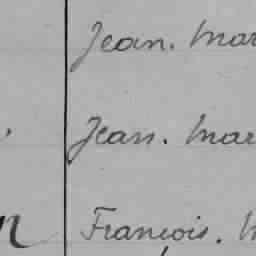 Jean. Mar
Jean. Mar
François.